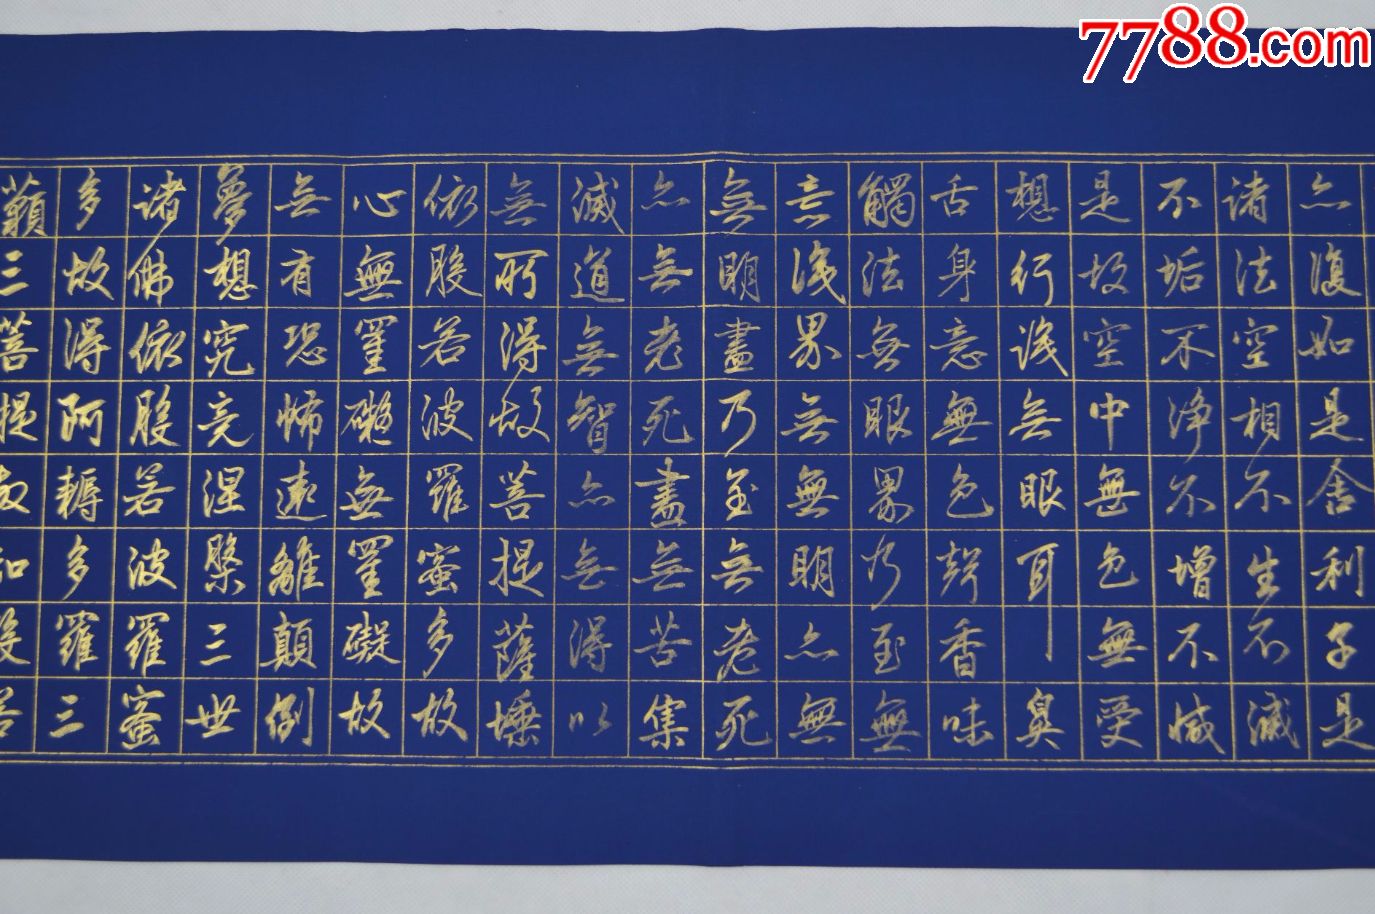 7788.com
亦復如是舍利子是
諸法空相不生不滅
不垢不淨不增不減
是故空中無色無受
想行識無眼耳鼻
舌身意無色聲香味
觸法無眼界乃至無
意識界無無明亦無
無明盡乃至無老死
亦無老死盡無苦集
滅道無智亦無得以
無所得故菩提薩埵
依般若波羅蜜多故
心無罣礙無罣礙故
無有恐怖遠離顛倒
夢想究竟涅槃三世
諸佛依般若波羅蜜
多故得阿耨多羅三
藐三菩提故知般若